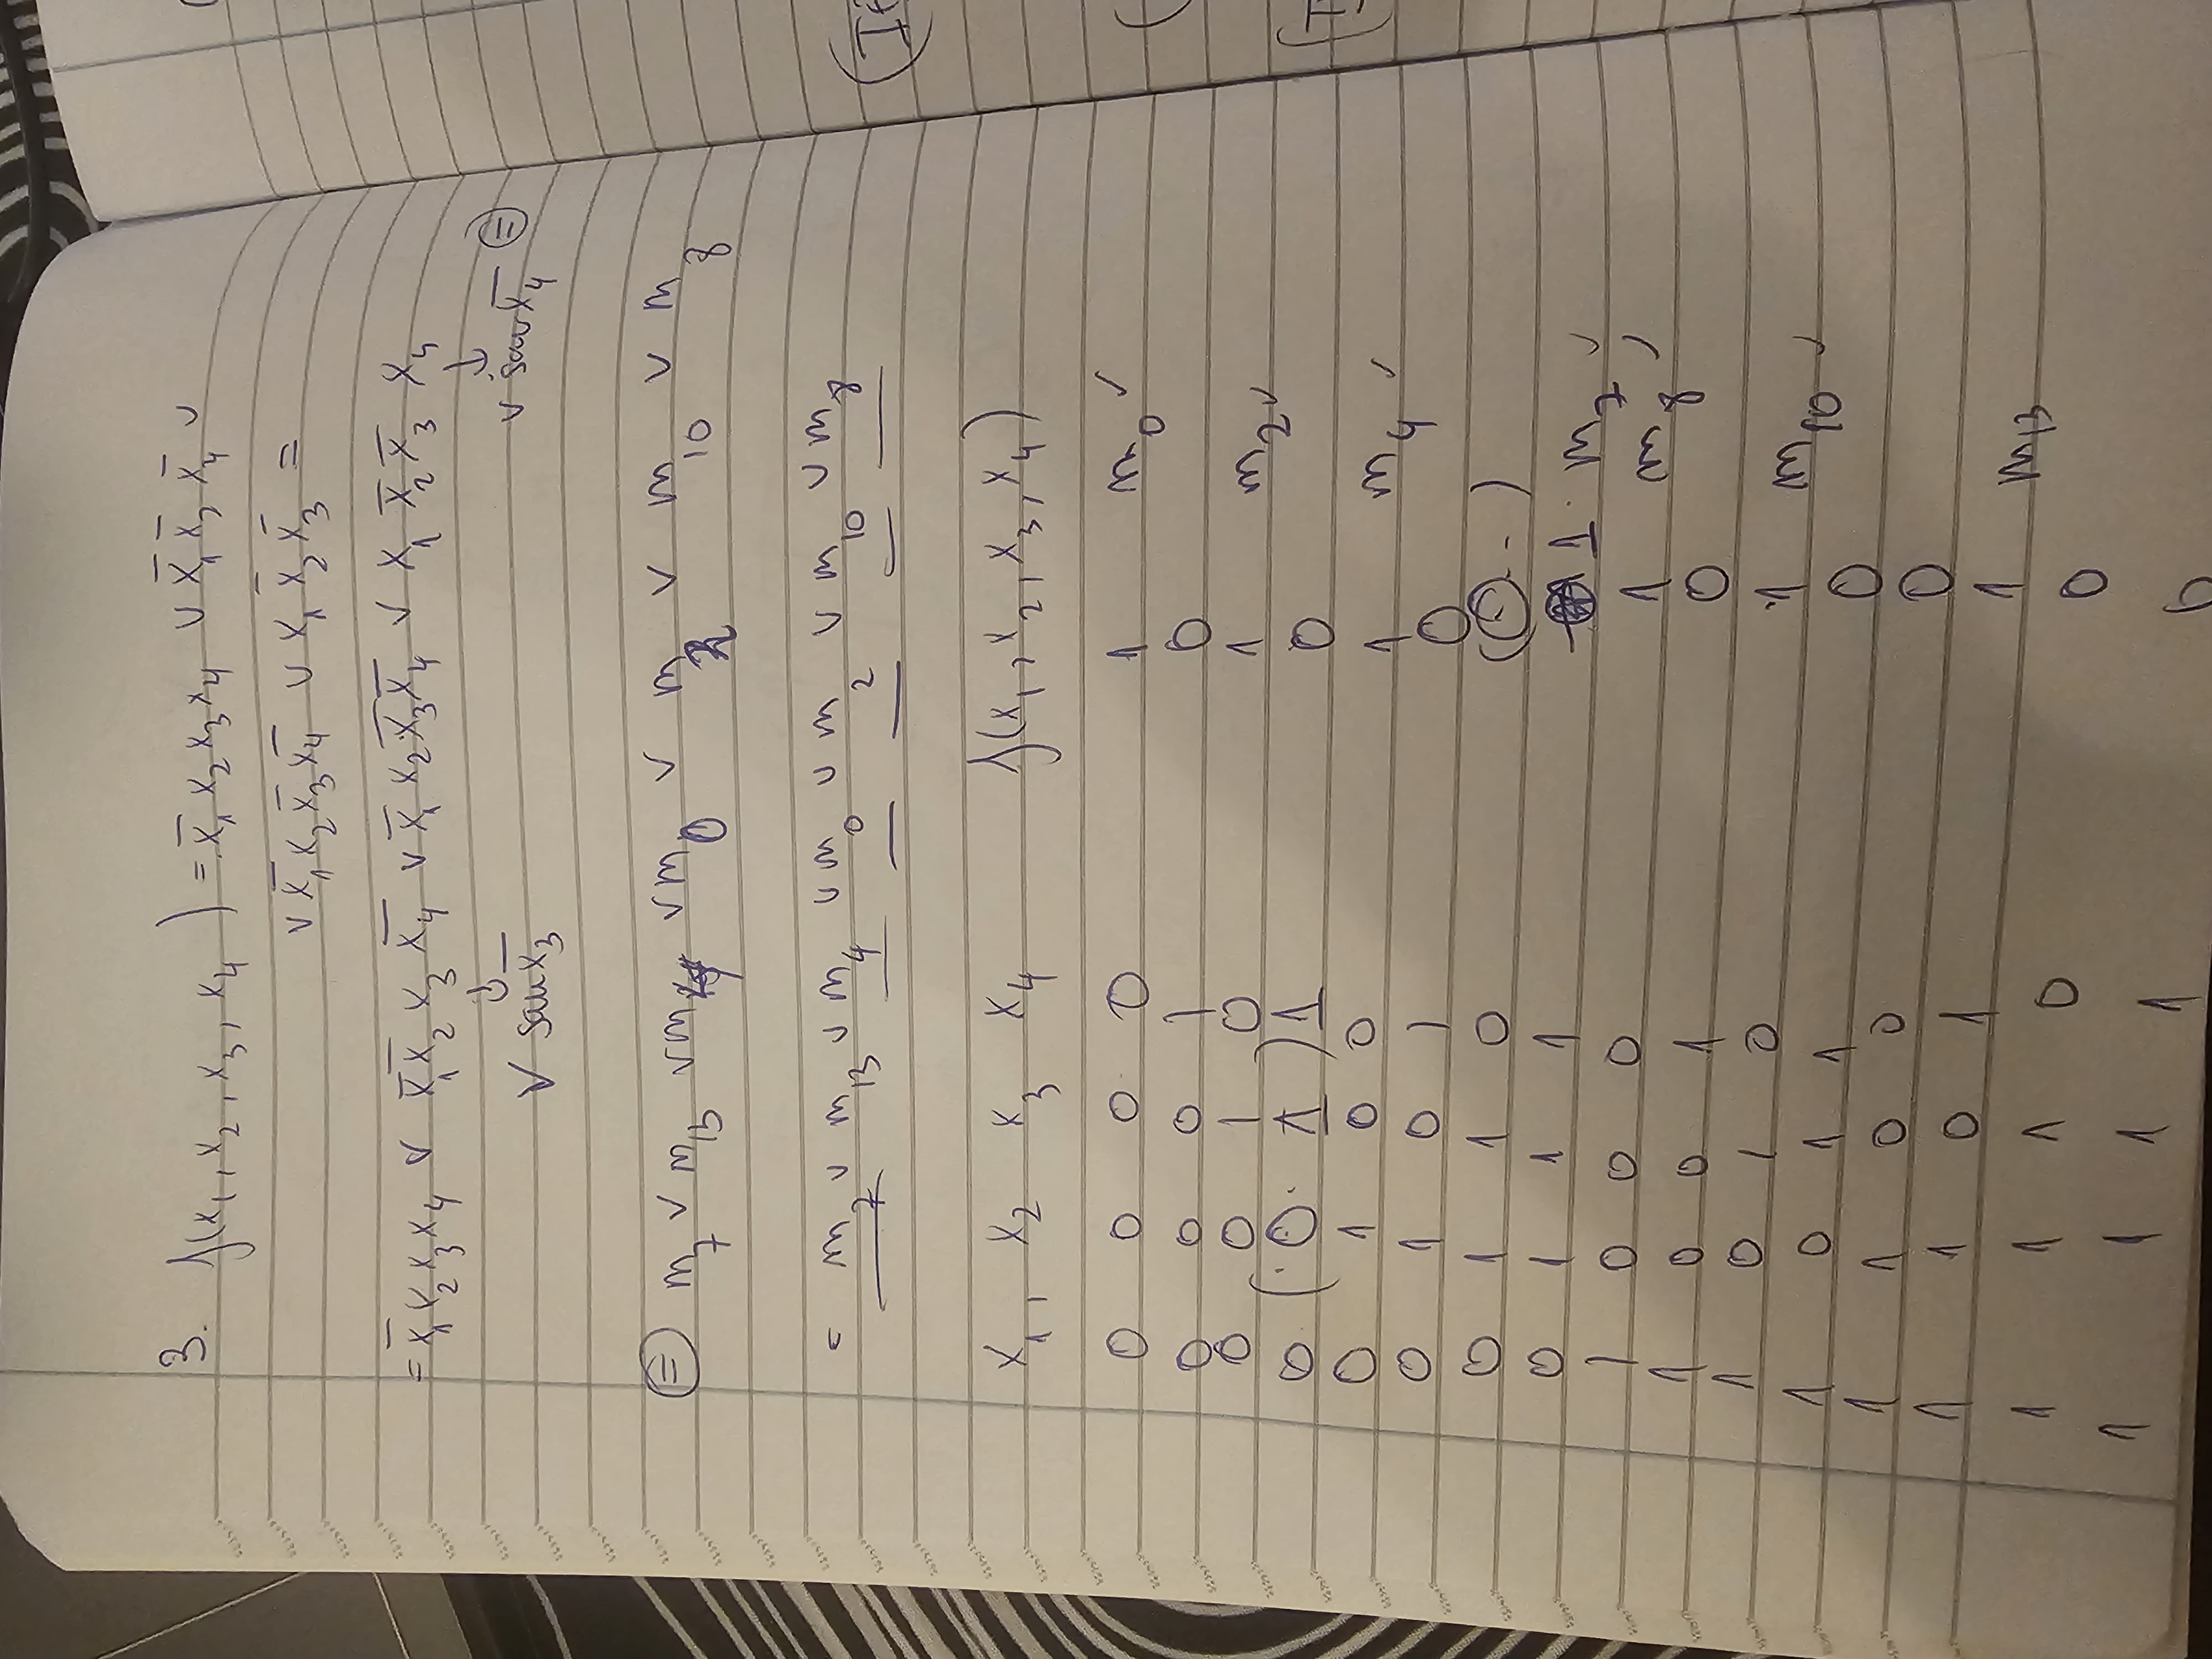 3. f(x₁, x₂, x₃, x₄) = x̅₁ x₂ x₃ x₄ ∨ x̅₁ x̅₂ x̅₄ ∨
∨ x̅₁ x₂ x̅₃ x̅₄ ∨ x₁ x̅₂ x̅₃ =
= x̅₁ x₂ x₃ x₄ ∨ x̅₁ x̅₂ x₃ x̅₄ ∨ x̅₁ x₂ x̅₃ x̅₄ ∨ x₁ x̅₂ x̅₃ x₄
↓ ↓
∨ sau x̅₃ ∨ sau x̅₄ =
= m₇ ∨ m₁₃ ∨ m ∨ m₀ ∨ m₂ ∨ m₁₀ ∨ m₈
= m₇ ∨ m₁₃ ∨ m₄ ∨ m₀ ∨ m₂ ∨ m₁₀ ∨ m₈
x₁, x₂ x₃ x₄ f(x₁, x₂, x₃, x₄)
0 0 0 0 1 m₀ ✓
0 0 0 1 0
0 0 1 0 1 m₂ ✓
0 (0 1) 1 0
0 1 0 0 1 m₄ ✓
0 1 0 1 0
0 1 1 0 (0)
0 1 1 1 1 m₇ ✓
1 0 0 0 1 m₈ ✓
1 0 0 1 0
1 0 1 0 1 m₁₀ ✓
1 0 1 1 0
1 1 0 0 0
1 1 0 1 1 m₁₃
1 1 1 0 0
1 1 1 1 0